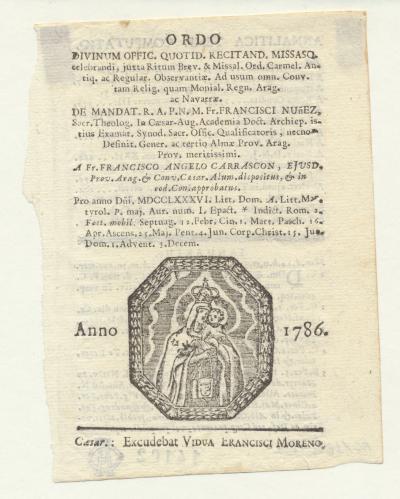 ORDO
DIVINUM OFFIC. QUOTID. RECITAND. MISSASQ.
celebrandi, juxta Ritum Brev. & Missal. Ord. Carmel. An-
tiq. ac Regular. Observantiæ. Ad usum omn. Conv.
tam Relig. quam Monial. Regn. Arag.
ac Navarræ.
DE MANDAT. R. A. P. N. M. Fr. FRANCISCI NUñEZ,
Sacr. Theolog. In Cæsar-Aug. Academia Doct. Archiep. is-
tius Examat. Synod. Sacr. Offic. Qualificatoris, necno-
Definit. Gener. ac tertio Almæ Prov. Arag.
Prov. meritissimi.
A Fr. FRANCISCO ANGELO CARRASCON, EJUSD.
Prov. Arag. & Conv. Cæsar. Alum. dispositus, & in
eod. Con. approbatus.
Pro anno Dñi. MDCCLXXXVI. Litt. Dom. A. Litt. Mar-
tyrol. P. maj. Aur. num. I. Epact. * Indict. Rom. 2.
Fest. mobil. Septuag. 12. Febr. Cin. 1. Mart. Pasch. 16.
Apr. Ascens. 25. Maj. Pent. 4. Jun. Corp. Christ. 15. Jun.
Dom. 1. Advent. 3. Decem.
Anno 1786.
Cæsar.: Excudebat VIDUA FRANCISCI MORENO.